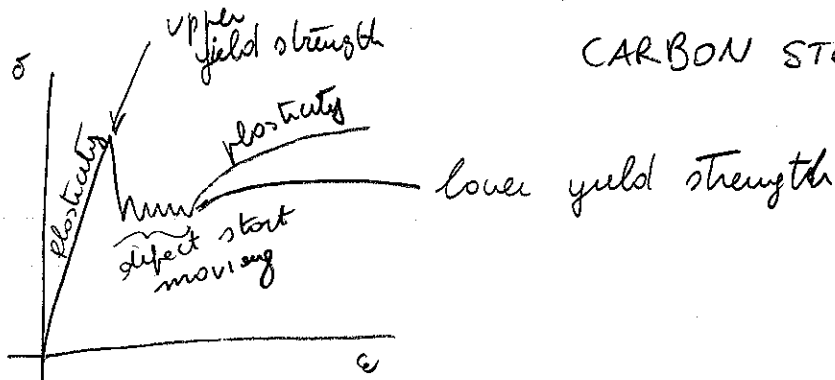 upper
yield strength
CARBON
σ
Elasticity
plasticity
lower yield strength
defect start
moving
ε